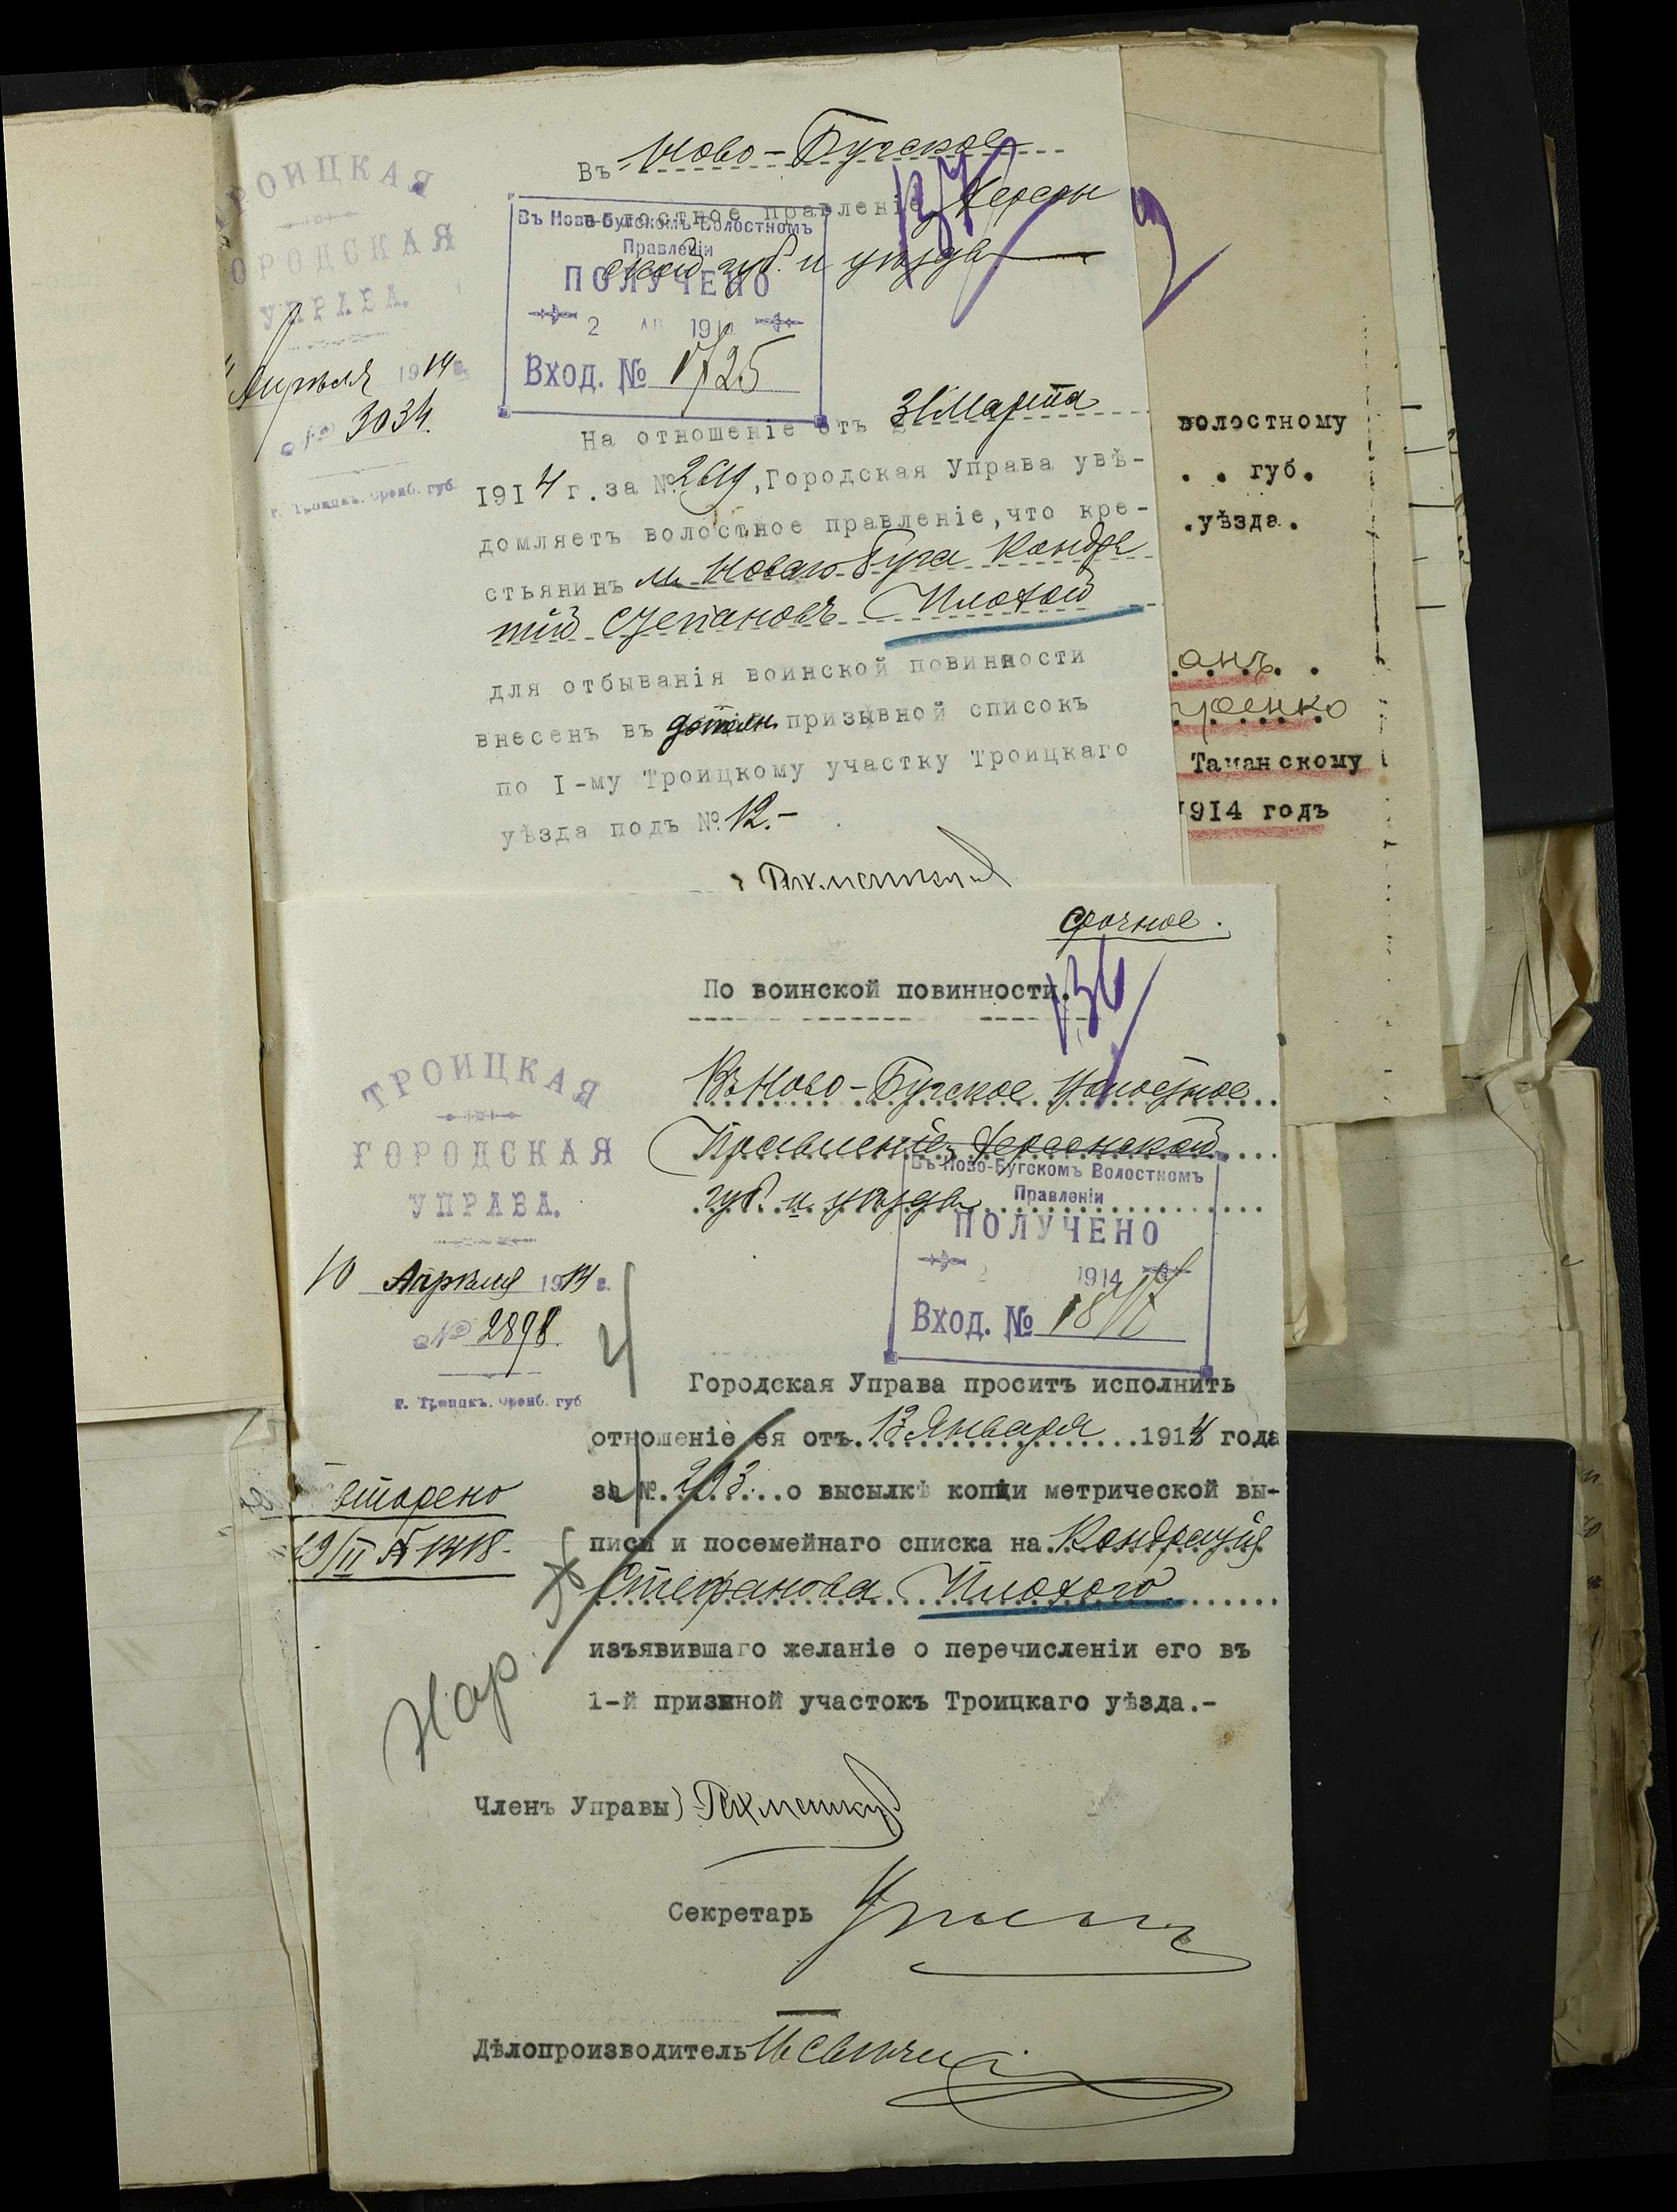 ТРОИЦКАЯ
ГОРОДСКАЯ
УПРАВА.
Апрѣля 1914 г.
№ 3034.
г. Троицкъ. Оренб. губ.
Въ Ново-Бугское
волостное правленіе Херсон
ской губ. и уѣзда
137
Въ Ново-Бугскомъ Волостномъ
Правленіи
ПОЛУЧЕНО
2 АП 191
Вход. № 1725
На отношеніе отъ 31 Марта
1914 г. за № 2619, Городская Управа увѣ-
домляетъ волостное правленіе, что кре-
стьянинъ м. Новаго Буга Кондра
тій Степановъ Плохой
для отбыванія воинской повинности
внесенъ въ дополн. призывной списокъ
по I-му Троицкому участку Троицкаго
уѣзда подъ № 12.-
волостному
. . губ.
.уѣзда.
анъ. .
енко
Таманскому
1914 годъ
срочное.
По воинской повинности.
136
ТРОИЦКАЯ
ГОРОДСКАЯ
УПРАВА.
10 Апрѣля 1914 г.
№ 2898.
г. Троицкъ. Оренб. губ
Въ Ново-Бугское Волостное
Правленіе, Херсонской
губ. и уѣзда
Въ Ново-Бугскомъ Волостномъ
Правленіи
ПОЛУЧЕНО
2 1914
Вход. №
Городская Управа проситъ исполнить
отношеніе ея отъ 13 Января 1914 года
за № 293 о высылкѣ копіи метрической вы-
писи и посемейнаго списка на Кондратія
Степанова Плохого
изъявившаго желаніе о перечисленіи его въ
1-й призывной участокъ Троицкаго уѣзда.-
19/II № 1418.
Членъ Управы
Секретарь
Дѣлопроизводитель